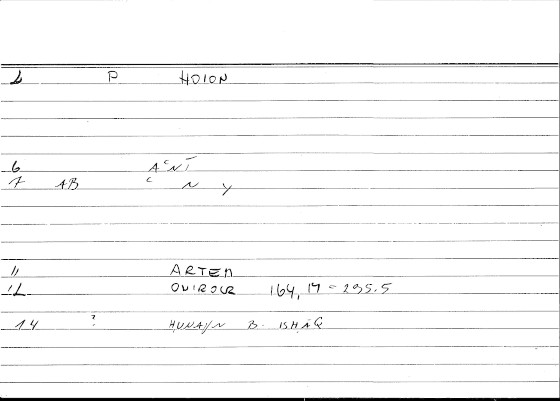 P HOION
6 AᶜNT
7 AB ᶜ N Y
11 ARTEM
12 ONIROCR 164,17 = 295.5
14 ? HUNAYN B. ISHĀQ